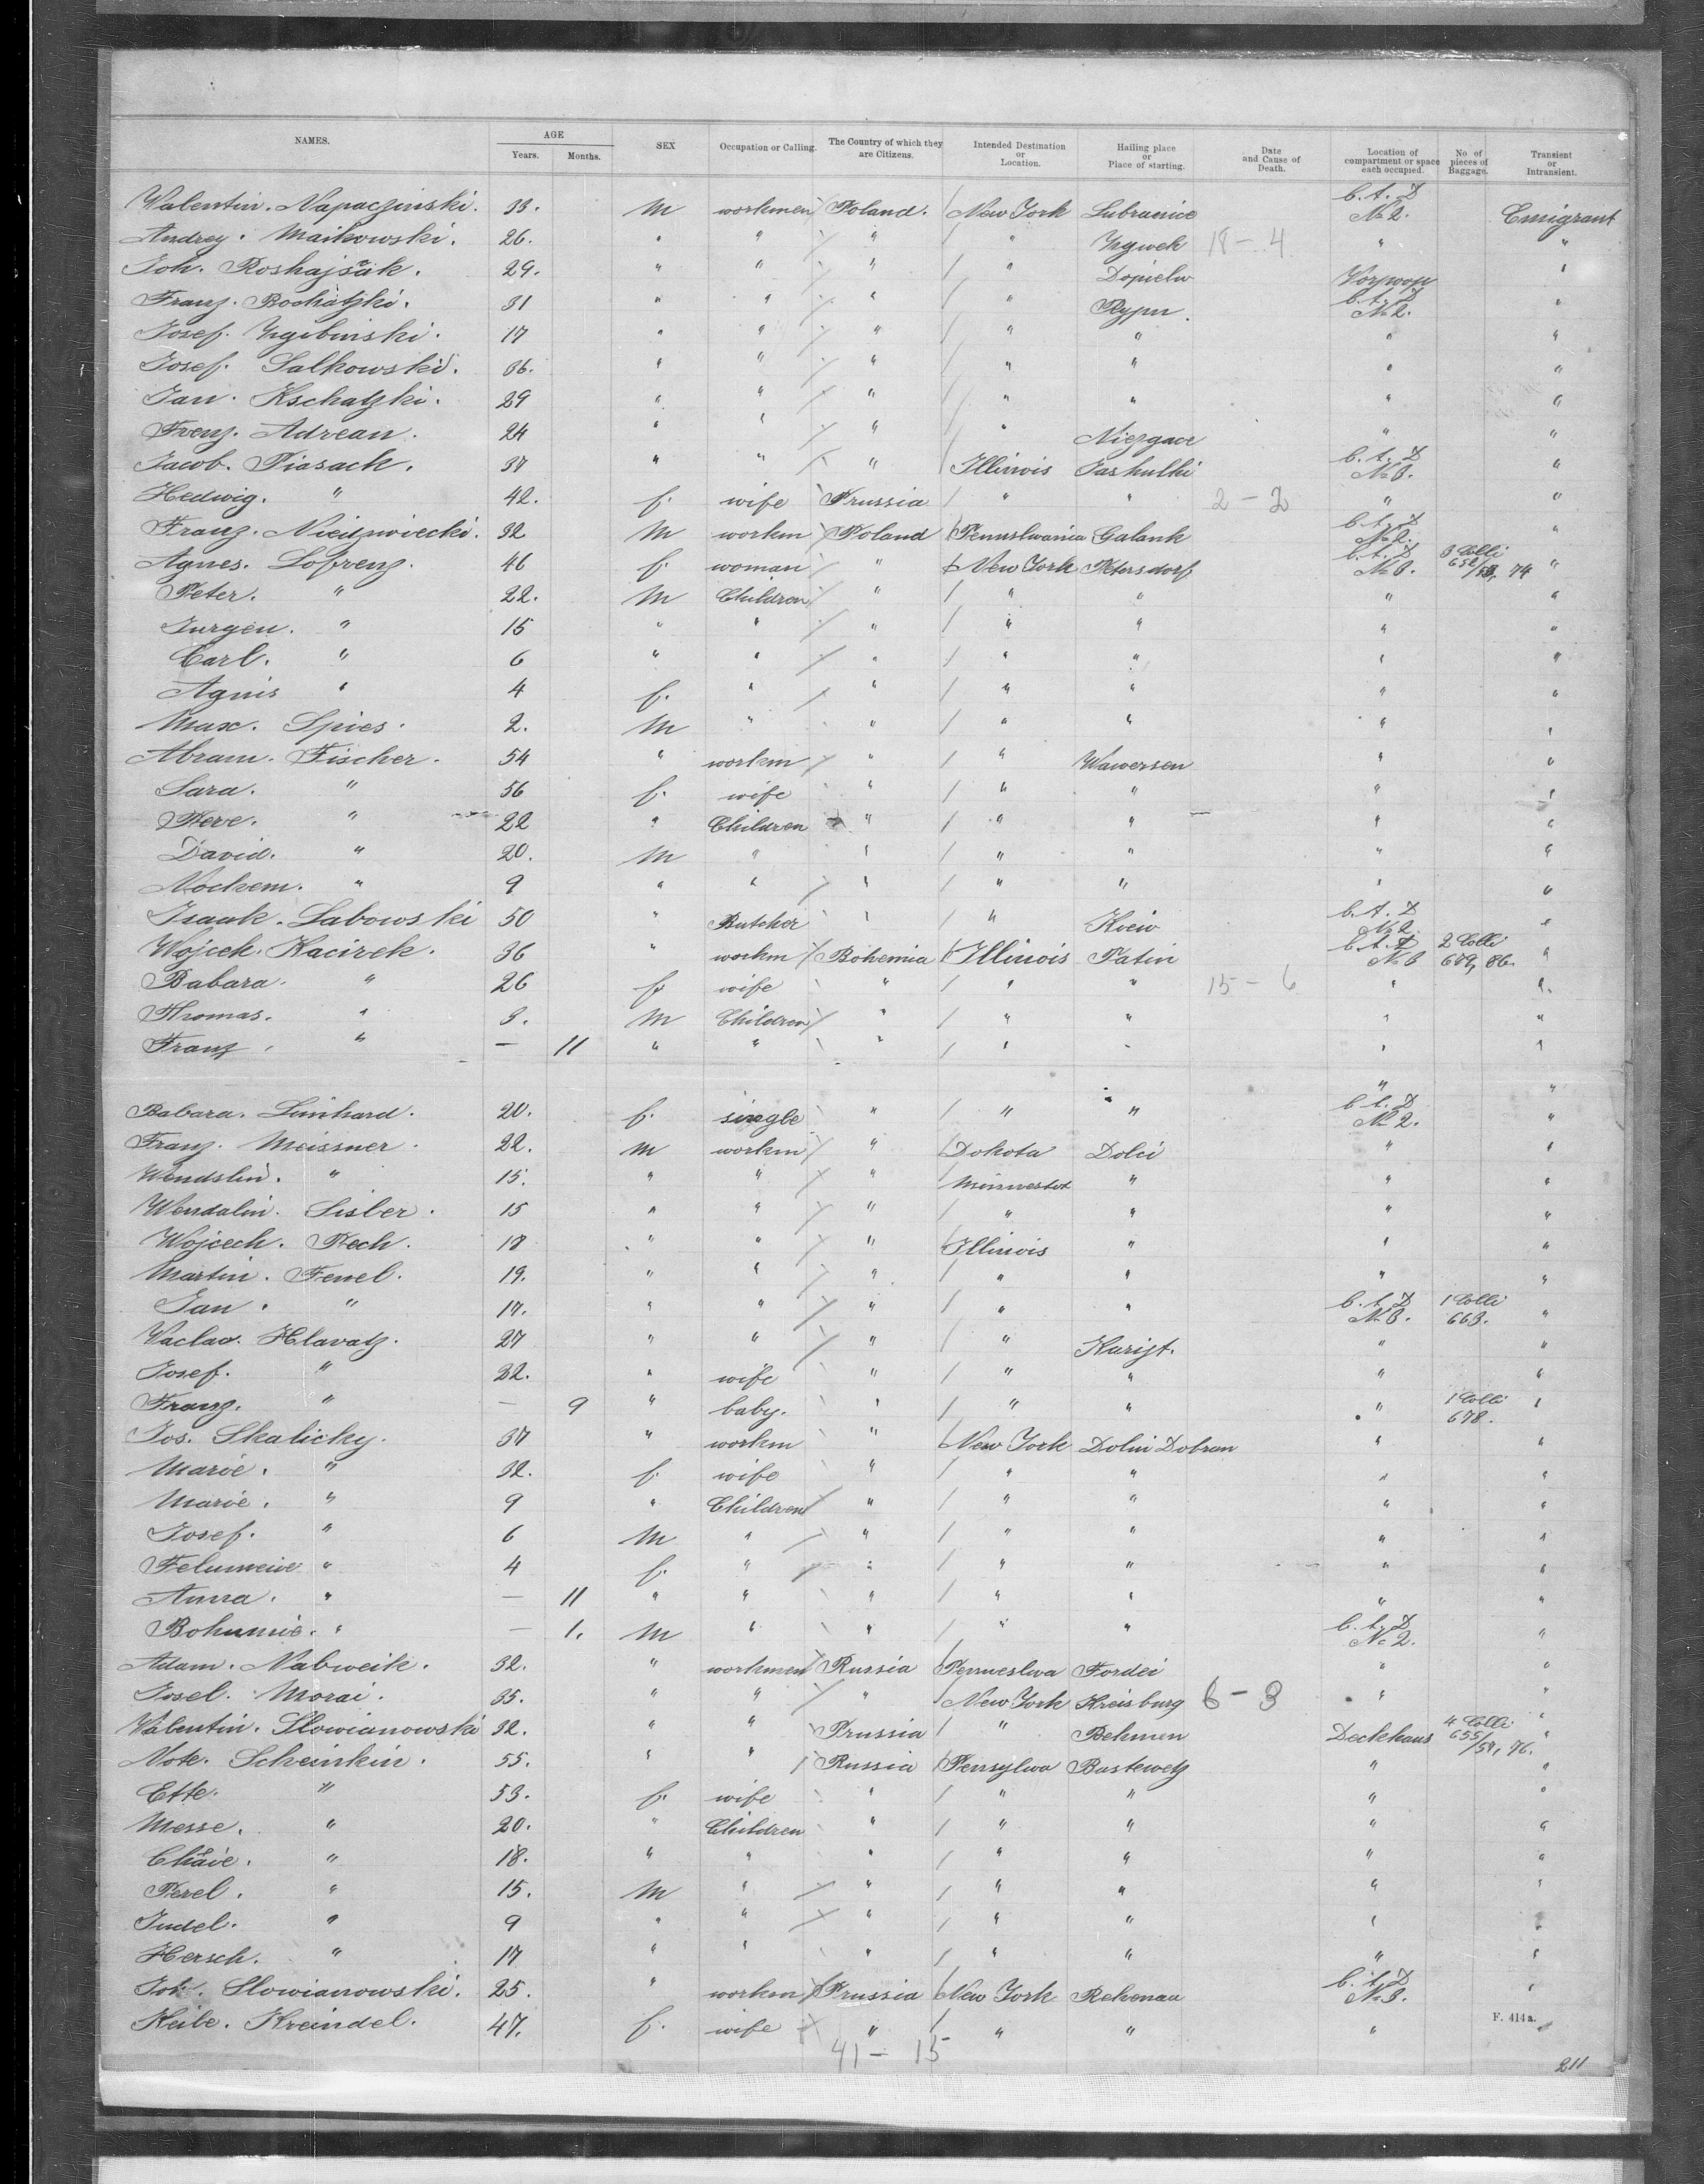 NAMES. AGE Years. Months. SEX Occupation or Calling. The Country of which they are Citizens. Intended Destination or Location. Hailing place or Place of starting. Date and Cause of Death. Location of compartment or space each occupied. No of pieces of Baggage. Transient or Intransient.
Valentin. Napaczinski. 33. M workmen Poland. New York Lubranice C. A. D No 2. Emigrant
Andrey. Maikowski. 26. " " " " 18 - 4 " "
Joh. 29. " " " " "
Franz. 31 " " " " Rypn. C. A. D No 2. "
Josef. 17 " " " " " " "
Josef. Salkowski. 36. " " " " " " "
Jan. Kschatzki. 29 " " " " " " "
Frenz. Adrean. 24 " " " " " "
Jacob. Piasack. 37 " " " Illinois C. A. D No 3. "
Hedwig. " 42. f. wife Prussia " " 2 - 2 " "
Franz. 32 M workm Poland Pennslwania Galank C. A. D No 2. "
Agnes. Lofrenz. 46 f. woman " New York Petersdorf C. A. D No 3. 3 Colli "
Peter. " 22. M Children " " " " "
Jurgen. " 15 " " " " " " "
Carl. " 6 " " " " " " "
Agnis " 4 f. " " " " " "
Max. Spies. 2. M " " " " " "
Abram. Fischer. 54 " workm " " Wawersen " "
Sara. " 56 f. wife " " " " "
" 22 " Children " " " " "
David. " 20. M " " " " " "
Nochem. " 9 " " " " " " "
Isaak. Labowski 50 " Butcher " " Kiew C. A. D No 2. "
Wojcek. Kacirek. 36 " workm Bohemia Illinois Patin C. A. D No 3 2 Colli 679, 86. "
Babara. " 26 f. wife " " " 15 - 6 " "
Thomas. " 3. M Children " " " " "
Franz " — 11 " " " " " " "
" "
Babara. Linhard. 20. f. single " " " C. A. D No 2. "
Franz. Meissner. 22. M workm " Dokota Dolci " "
Wendslin. " 15. " " " " " "
Wendalin. Sisber. 15 " " " " " " "
Wojcech. Pech. 18 " " " Illinois " " "
Martin. Fenel. 19. " " " " " " "
Jan. " 17. " " " " " C. A. D No 3. 1 Colli 663. "
Vaclav. Hlavatz. 27 " " " " " "
Josef. " 22. " wife " " " " "
Franz. " — 9 " baby. " " " " 1 Colli 678. "
Jos. Skalicky. 37 " workm " New York Dolin Dobran " "
Marie. " 32. f. wife " " " " "
Marie. " 9 " Children " " " " "
Josef. " 6 M " " " " " "
" 4 f. " " " " " "
Anna. " — 11 " " " " " " "
" — 1. M " " " " C. A. D No 2. "
Adam. Nabweik. 32. " workmen Russia Penneslwa Fordei " "
Josel. Morai. 35. " " " New York Kreisburg 6 - 3 " "
Valentin. Slowianowski 32. " " Prussia " Behmen Deckhaus 4 Colli "
Note. Scheinkin. 55. " " Russia Pensylwa Bastewetz " "
Ette. " 53. f. wife " " " " "
Messe. " 20. " Children " " " " "
Chaie. " 18. " " " " " " "
Perel. " 15. M " " " " " "
Judel. " 9 " " " " " " "
Hersch. " 17 " " " " " " "
Joh. Slowianowski. 25. " workm Prussia New York Rehenau C. A. D No 3. "
Keile. Kreindel. 47. f. wife " " " " "
F. 414a.
41 - 15
211